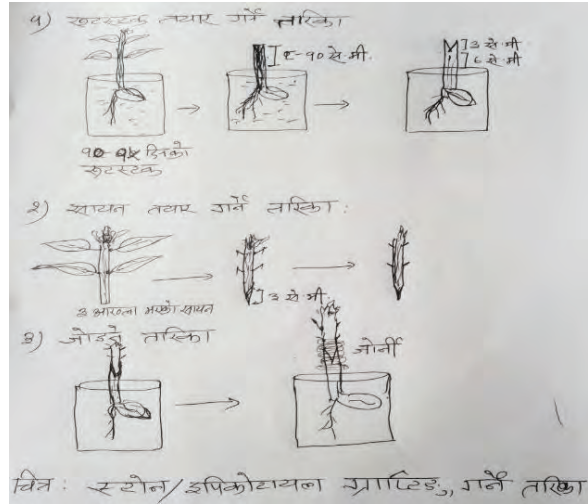 १) रुटस्टक तयार गर्ने तरिका
८-१० से.मी.
३ से.मी
६ से.मी
१०-१५ दिनको
रुटस्टक
२) सायन तयार गर्ने तरिका:
३ आँख्ला भएको सायन
३ से.मी.
३) जोड्ने तरिका
जोर्नी
चित्र: स्टोन/इपिकोटायल ग्राफ्टिङ्ग गर्ने तरिका